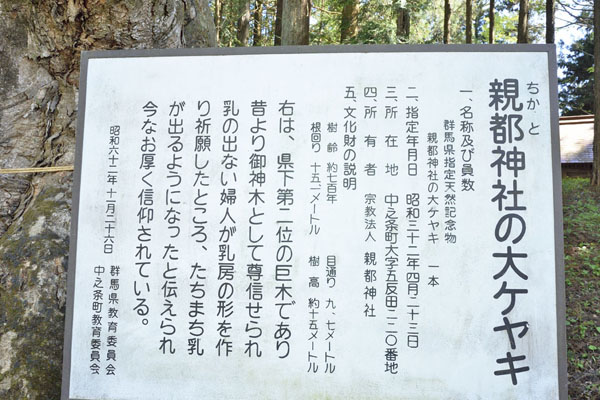 ちかと
親都神社の大ケヤキ
一、名称及び員数
群馬県指定天然記念物
親都神社の大ケヤキ 一本
二、指定年月日 昭和三十二年四月二十三日
三、所在地 中之条町大字五反田二二〇番地
四、所有者 宗教法人 親都神社
五、文化財の説明
樹齢 約七百年 目通り 九、七メートル
根回り 十五・一メートル 樹高 約十五メートル
右は、県下第二位の巨木であり
昔より御神木として尊信せられ
乳の出ない婦人が乳房の形を作
り祈願したところ、たちまち乳
が出るようになったと伝えられ
今なお厚く信仰されている。
昭和六十二年十一月二十六日
群馬県教育委員会
中之条町教育委員会